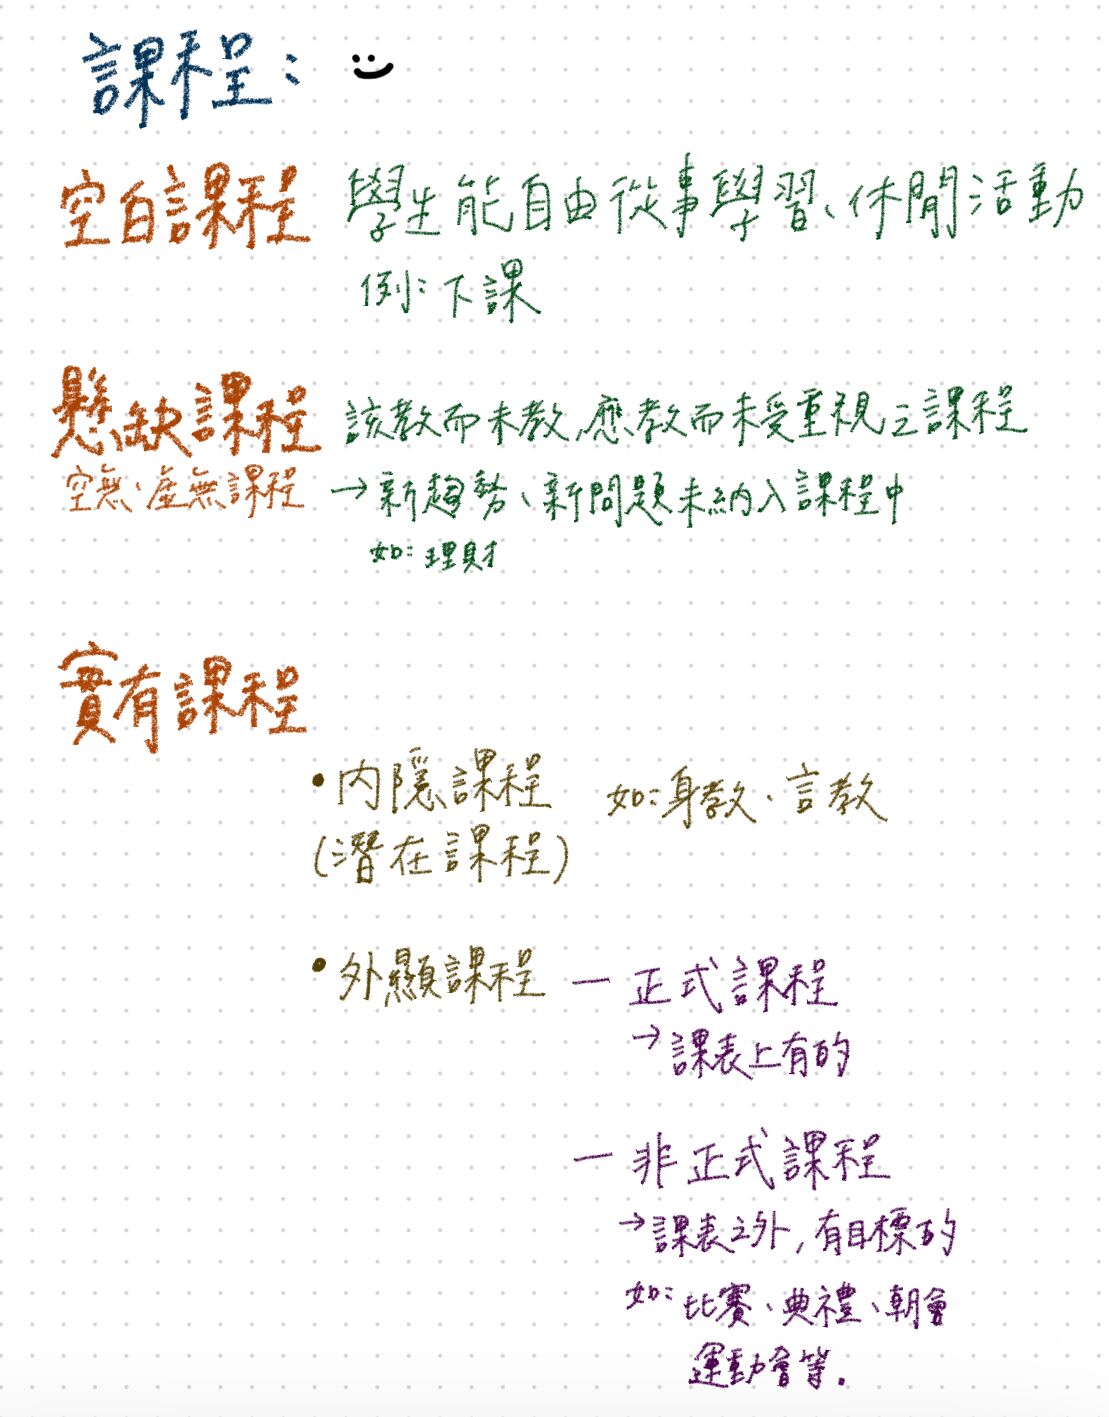 課程：
空白課程 學生能自由從事學習、休閒活動
例：下課
懸缺課程 該教而未教，應教而未受重視之課程
空無、虛無課程 →新趨勢、新問題未納入課程中
如：理財
實有課程
•內隱課程 如：身教、言教
(潛在課程)
•外顯課程 — 正式課程
→課表上有的
— 非正式課程
→課表之外，有目標的
如：比賽、典禮、朝會
運動會等.